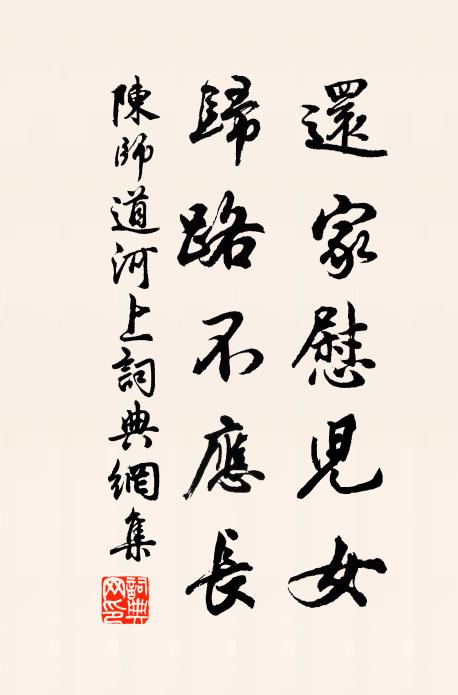 還家慰兒女
歸路不應長
陳師道河上詞典網集
詞典網印